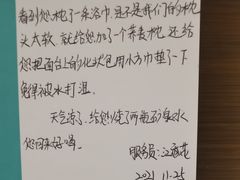 看到您枕了一条浴巾，是不是我们的枕
头太软，就给您加了一个荞麦枕，还给
您把面台上的化妆包用小方巾垫了一下
免得被水打湿。
天气凉了，给您烧了两瓶
您回来好喝。
服务员：
2021.11.25